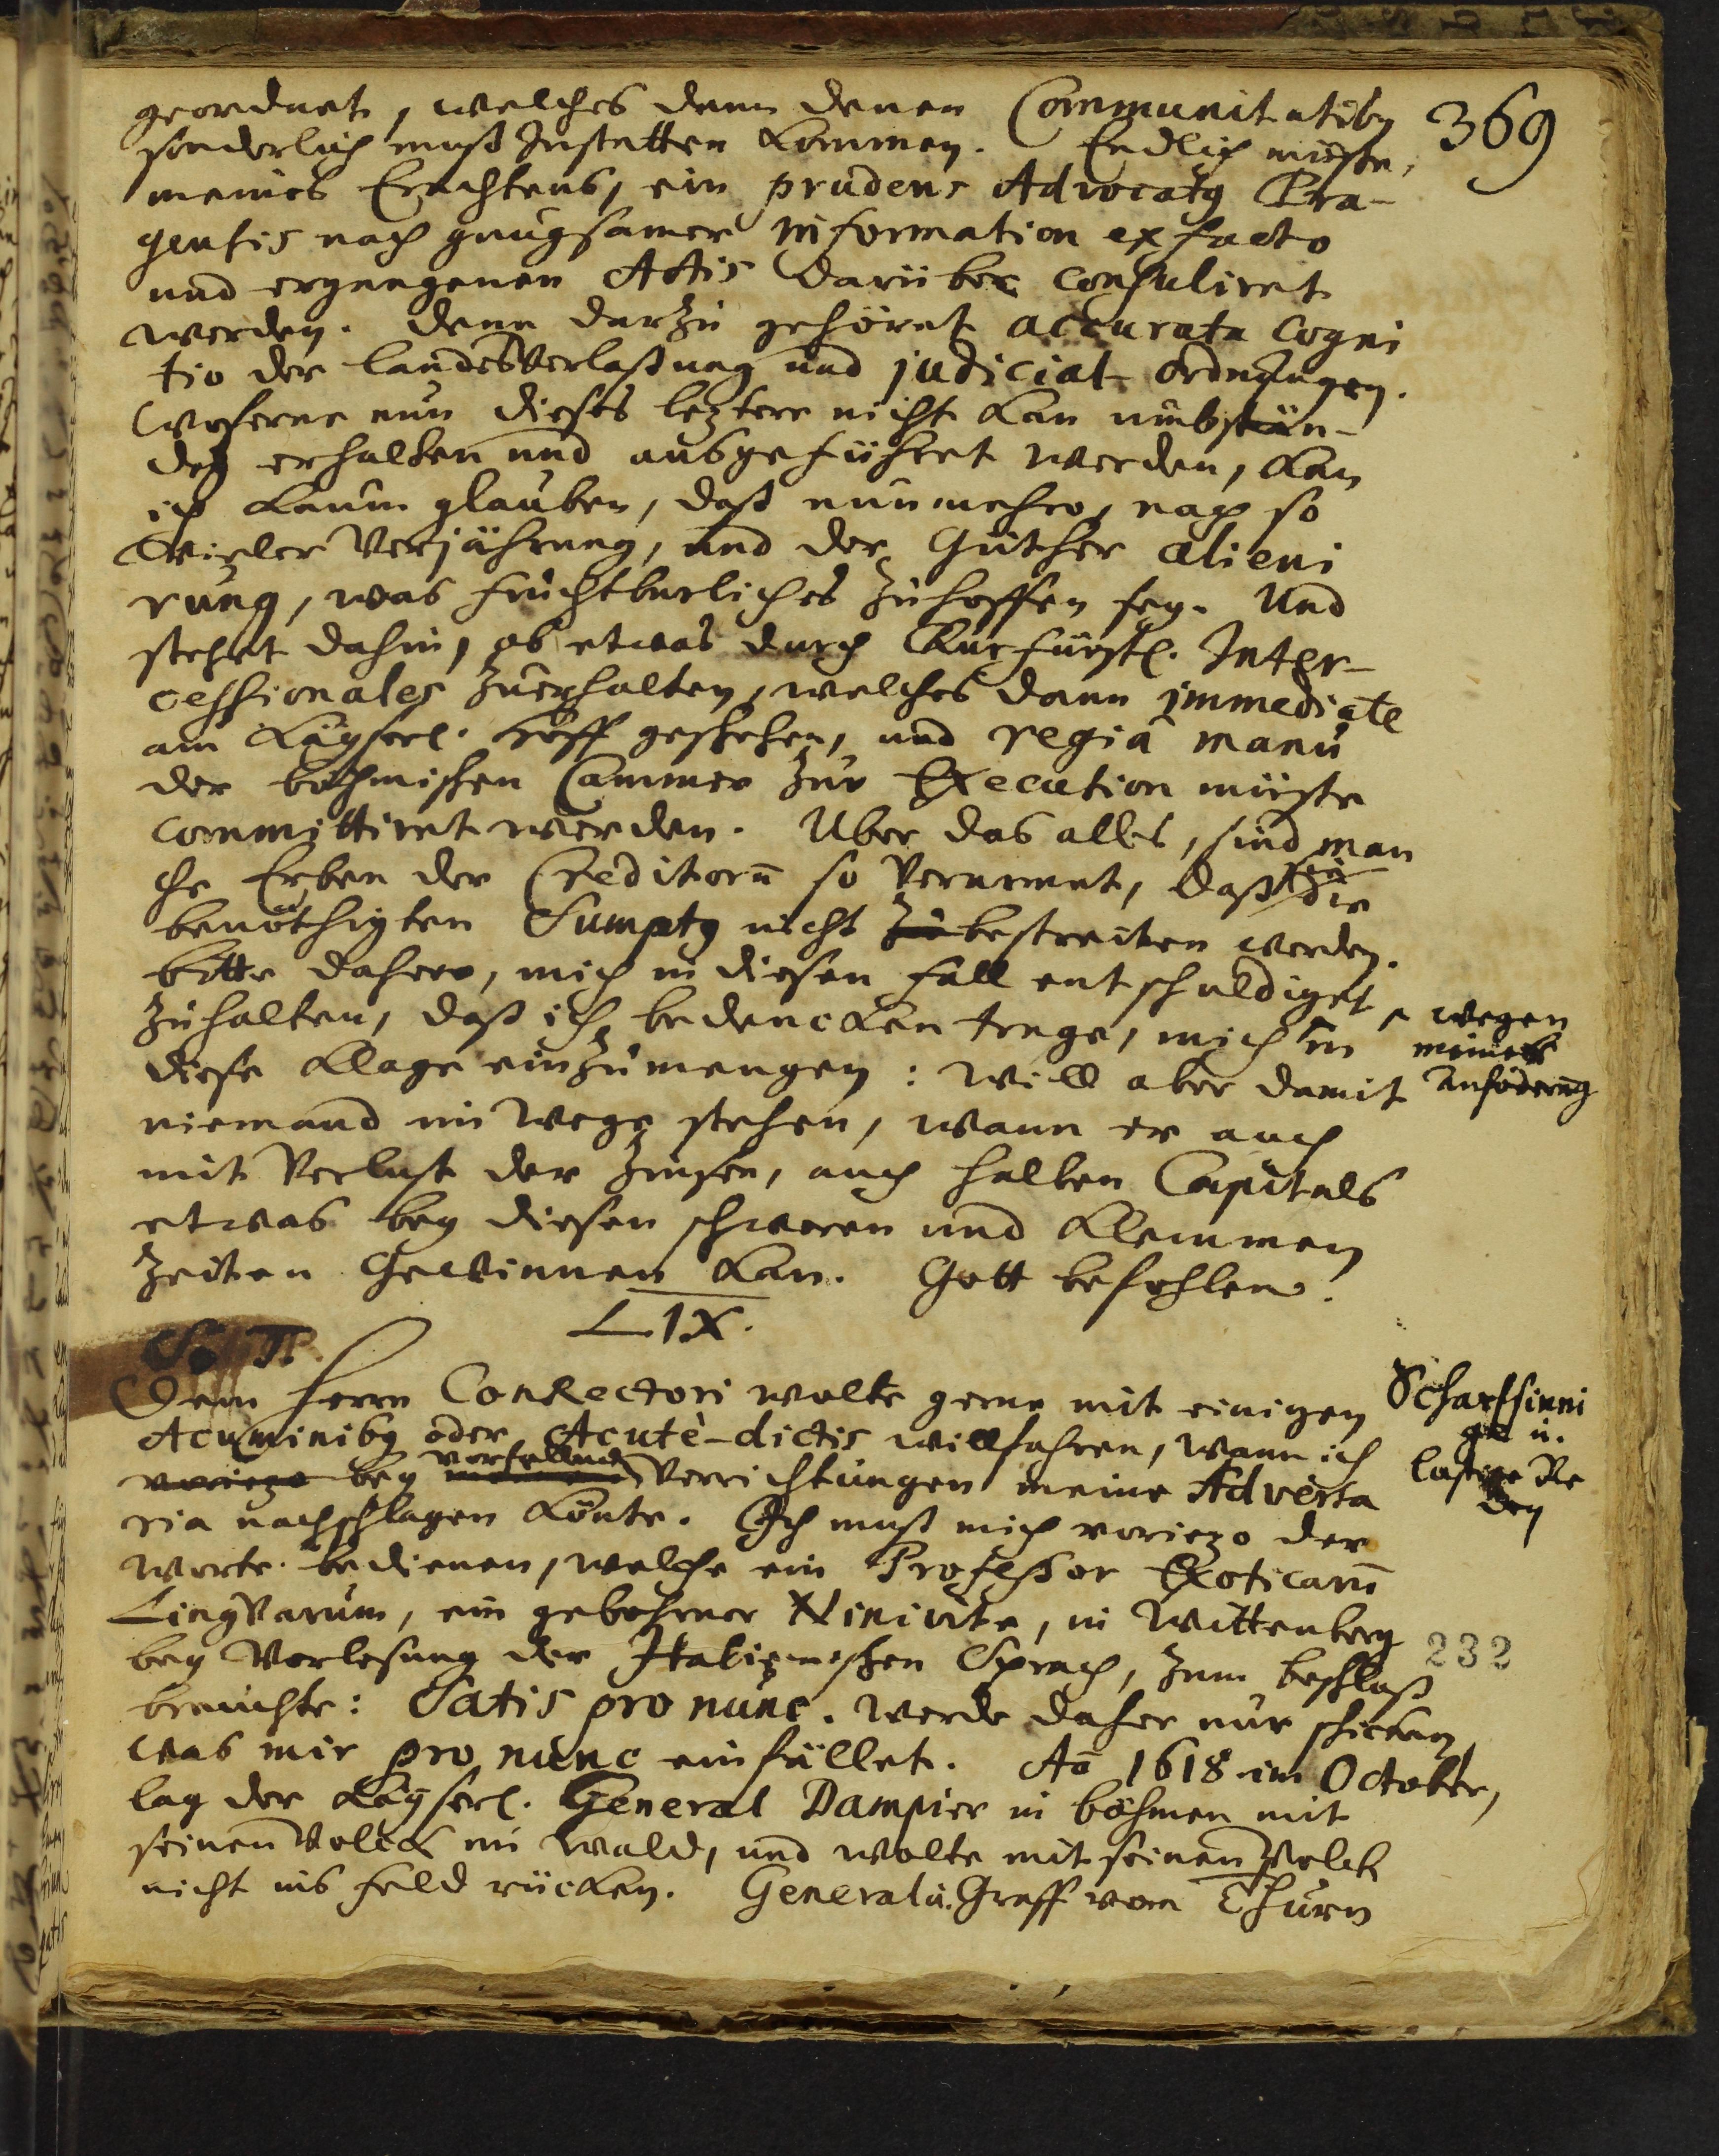 369
geordnet, welches dann denen Communitatibq
sonderlich muß zustatten kommen. Endlich müste,
meines Erachtens, ein prudens Advocatq Pra-
gensis nach gnugsamer information ex facto
und ergangenen Actis darüber consuliret
werden. Denn darzu gehöret accurata cogni
tio der landesverlaßung und judicial-ordnungen.
Woferne nun dieses leztere nicht kan umbstän-
dl erhalten und ausgeführet werden, kan
ich kaum glauben, daß nunmehro, nach so
vieler Verjährung, und der Güther alieni
rung, was fruchtbarliches zuhoffen sey. Und
stehet dahin, ob etwas durch Kurfürstl. Inter-
cessionales zuerhalten, welches dann immediate
am Käyserl. Hoff geschehen, und regiâ manu
der böhmischen Cammer zur Execution müste
committiret werden. Uber das alles, sind man
che Erben der Creditorū so verarmet, daß sie die
benöthigten Sumptq nicht zu bestreiten werden.
bitte dahero, mich in diesen fall entschuldiget
zuhalten, daß ich bedencken trage, mich in
diese Klage einzumengen: will aber damit
niemand im Wege stehen, wann er auch
mit Verlust der Zinsen, auch halben Capitals
etwas bey diesen schweren und klemmen
Zeiten gewinnen kan. Gott befohlen.
wegen
meiner
Anfoderung
LIX.
S. T.
Dem Herrn ConRectori wolte gerne mit einigen
Acuminibq oder Acutè-dictis willfahren, wann ich
voriezo bey vorfallend Verrichtungen meine Adversa
ria nachschlagen könte. Ich muß mich voriezo der
Worte bedienen, welche ein Professor Exoticarū
Lingvarum, ein gebohrner Ninivite, in Wittenberg
bey Vorlesung der Italienischen Sprach, zum beschluß
brauchte: Satis pro nunc. werde daher nur schicken
was mir pro nunc einfället. Aō 1618 im October,
lag der Käyserl. General Dampier in böhmen mit
seinen Volck im Wald, und wolte mit seinen Volck
nicht ins feld rücken. General u. Graff von Thurn
Scharfsinni
ge u.
lustige Re
den
232